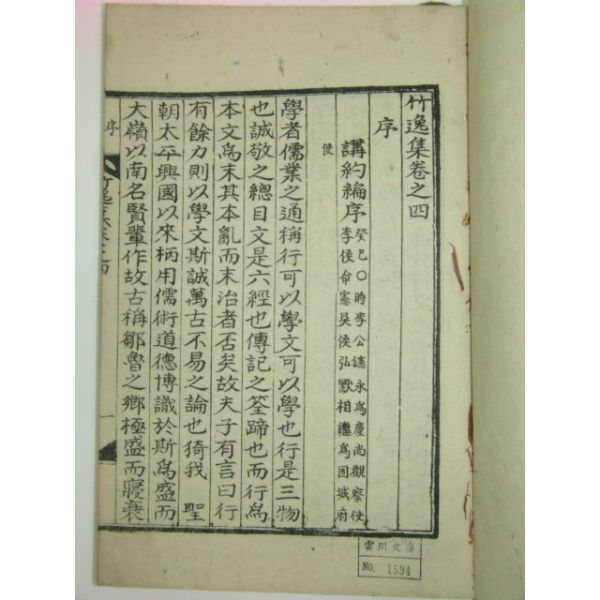 竹逸集卷之四
序
講約編序
癸巳〇時李公鐮永爲慶尚觀察使
李侯命憲吳侯弘默相繼爲固城府
使
學者儒業之通稱行可以學文可以學也行是三物
也誠敬之總目文是六經也傳記之筌蹄也而行爲
本文爲末其本亂而末治者否矣故夫子有言曰行
有餘力則以學文斯誠萬古不易之論也猗我 聖
朝太平興國以來柄用儒術道德博識於斯爲盛而
大嶺以南名賢輩作故古稱鄒魯之鄉極盛而寢衰
序
雲川文庫
No. 1594